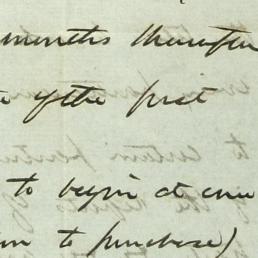 months therefor
of the first
to begin at once
to purchase)